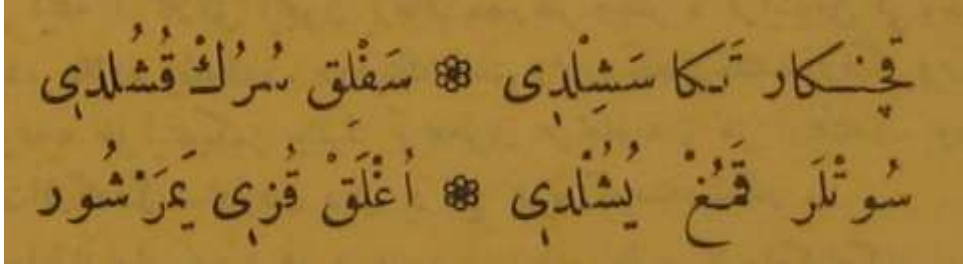 قچنكار تَكا سَشِلْدِى ❁ سَغْلِق سُرُكْ قُشُلدِى
سُوتْلَر قَمُغْ يُشُلْدِى ❁ اُغْلَقْ قُزِى يَمَرَشُور